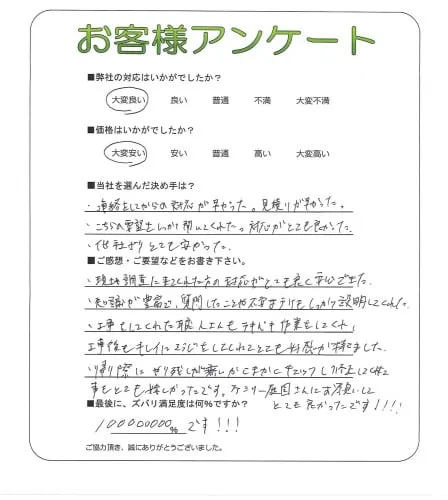 お客様アンケート
■弊社の対応はいかがでしたか？
大変良い 良い 普通 不満 大変不満
■価格はいかがでしたか？
大変安い 安い 普通 高い 大変高い
■当社を選んだ決め手は？
・連絡をしてからの対応が早かった。見積りが早かった。
・こちらの要望をしっかり聞いてくれた。対応がとても良かった。
・他社よりとても安かった。
■ご感想・ご要望などをお書き下さい。
・現地調査に来てくれた方の対応がとても良く安心できた。
・知識が豊富で、質問したことや不安まで1をしっかり説明してくれた。
・工事をしてくれた職人さんもテキパキ作業をしてくれ
工事後もキレイにそうじをしてくれてとても好感が持てました。
・帰り際に やり残しが無いかこまかくチェックし してくれた
事もとても嬉しかったです。ファミリー庭園さんにお願いして
■最後に、ズバリ満足度は何％ですか？
とても良かったです!!!!
100000000％です!!!
ご協力頂き、誠にありがとうございました。